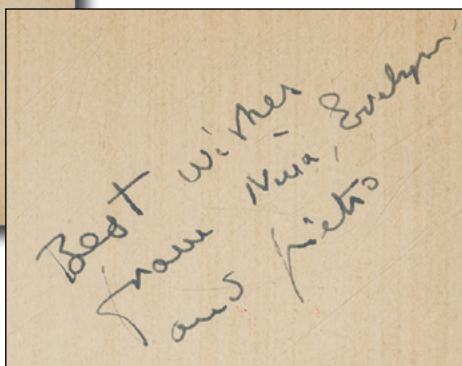 Best Wishes
from Nina, Evelyn,
and Pietro